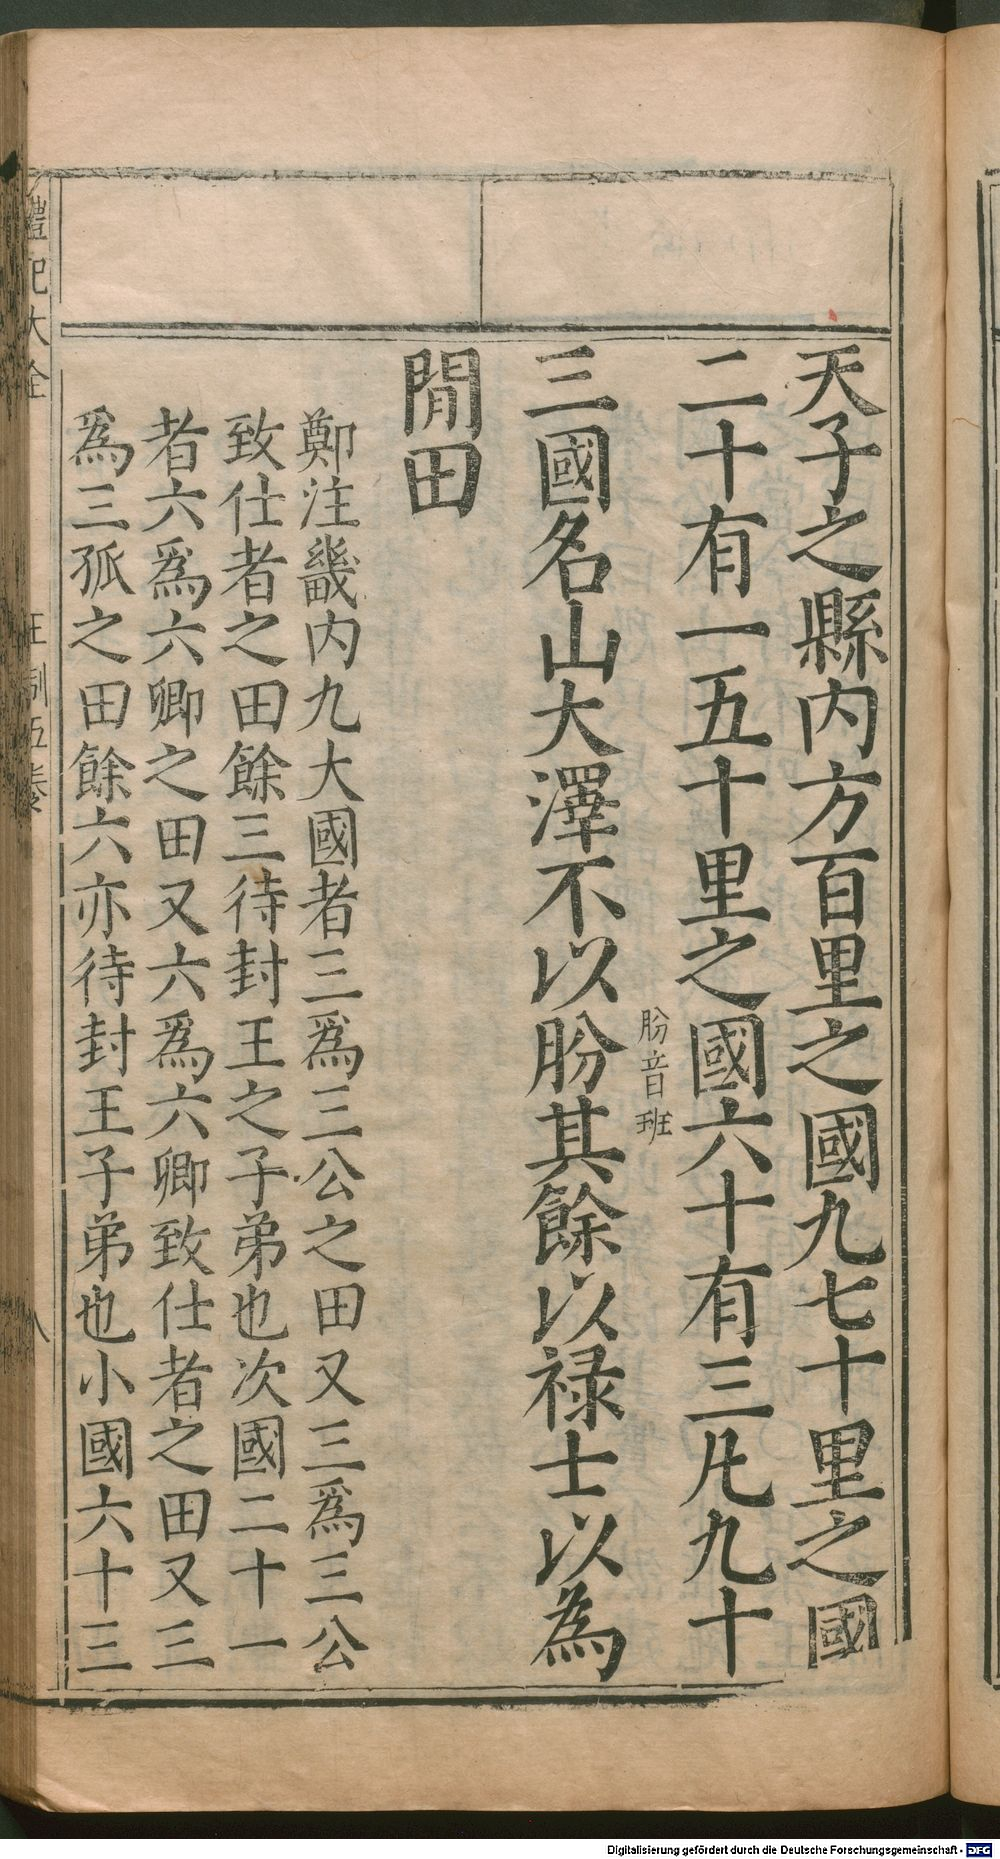 天子之縣内方百里之國九七十里之國
二十有一五十里之國六十有三凡九十
肦音班
三國名山大澤不以肦其餘以禄士以為
閒田
鄭注畿内九大國者三爲三公之田又三爲三公
致仕者之田餘三待封王之子弟也次國二十一
者六爲六卿之田又六爲六卿致仕者之田又三
爲三孤之田餘六亦待封王子弟也小國六十三
禮記大全 王制五卷 八
Digitalisierung gefördert durch die Deutsche Forschungsgemeinschaft - DFG